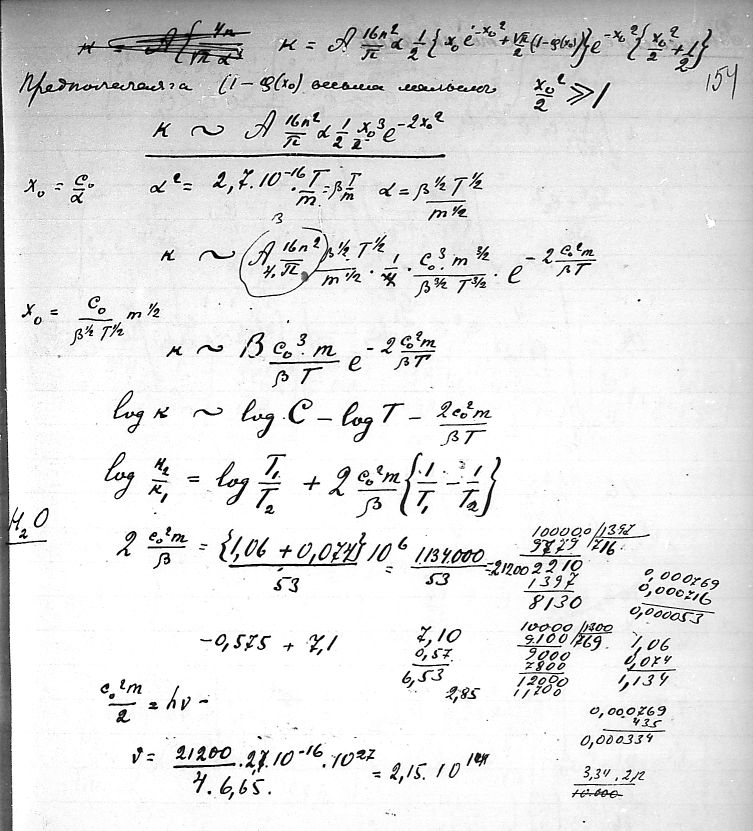 κ = A 16n²/π α 1/2 {x₀e^{-x₀²} + √π/2 (1-φ(x₀))} e^{-x₀²} {x₀²/2 + 1/2}
154
Предполагая (1-φ(x₀) весьма малым x₀²/2 ≫ 1
κ ~ A 16n²/π α 1/2 x₀³/2 e^{-2x₀²}
x₀ = c₀/α α² = 2,7.10^{-16}.T/m = β T/m α = β^{1/2} T^{1/2}/m^{1/2}
β
κ ~ (A 16n²/4.π.) β^{1/2} T^{1/2}/m^{1/2} · 1/4 · c₀³ m^{3/2}/β^{3/2} T^{3/2} · e^{-2 c₀²m/βT}
x₀ = c₀/β^{1/2} T^{1/2} m^{1/2}
κ ~ B c₀³.m/βT e^{-2 c₀²m/βT}
log κ ~ log C - log T - 2c₀²m/βT
log κ₂/κ₁ = log T₁/T₂ + 2 c₀²m/β {1/T₁ - 1/T₂}
H₂O
2 c₀²m/β = {1,06 + 0,074}10⁶/53 = 1.134.000/53 = 21200
10000 |1397
9779 |716
2210
1397
8130
0,000769
0,000716
0,000053
-0,575 + 7,1
7,10
0,57
6,53
2,85
10000 |1300
9100 |769
9000
7800
12000
11,700
1,06
0,074
1,134
c₀²m/2 = hν -
0,000769
435
0,000334
ν = 21200.2,7.10^{-16}.10^{27}/4.6,65. = 2,15.10^{14}
3,34.2,12
10.000